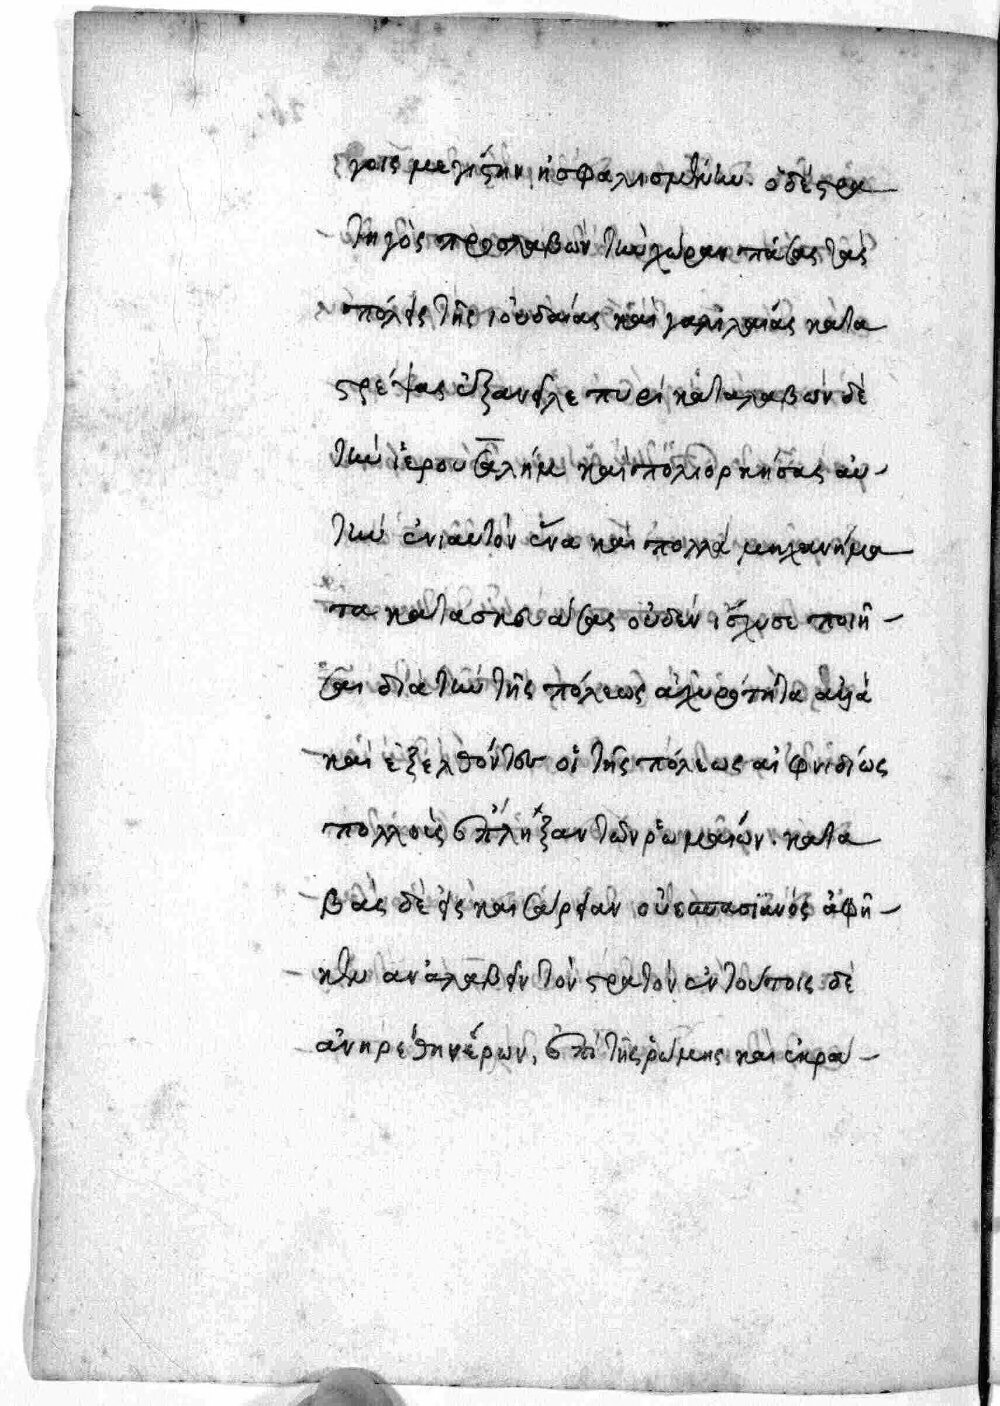 γοις μεγίστην ἠσφαλισμένην. ὁ δὲ στρα
τηγὸς προσλαβὼν τὴν χώραν πάσας τὰς
πόλεις τῆς ἰουδαίας καὶ γαλιλαίας κατα
στρέψας ἐξανεῖλε πυρί καταλαβὼν δὲ
τὴν ἱερουσαλήμ καὶ πολιορκήσας αὐ-
τὴν ἐνιαυτὸν ἕνα καὶ πολλά μηχανήμα
τα κατασκευάσας οὐδὲν ἴσχυσε ποιῆ-
σαι διὰ τὴν τῆς πόλεως ὀχυρότητα ἀλλὰ
καὶ ἐξελθόντες οἱ τῆς πόλεως αἰφνιδίως
πολλοὺς ἔπληξαν τῶν ῥωμαίων. κατα
βὰς δὲ εἰς καισάρειαν οὐεσπασϊανός ἀφῆ-
κεν αναλαβεῖν τὸν στρατόν ἐν τούτοις δὲ
ἀνῃρέθη νέρων, ἐπὶ τῆς ῥώμης καὶ ἐκρά-